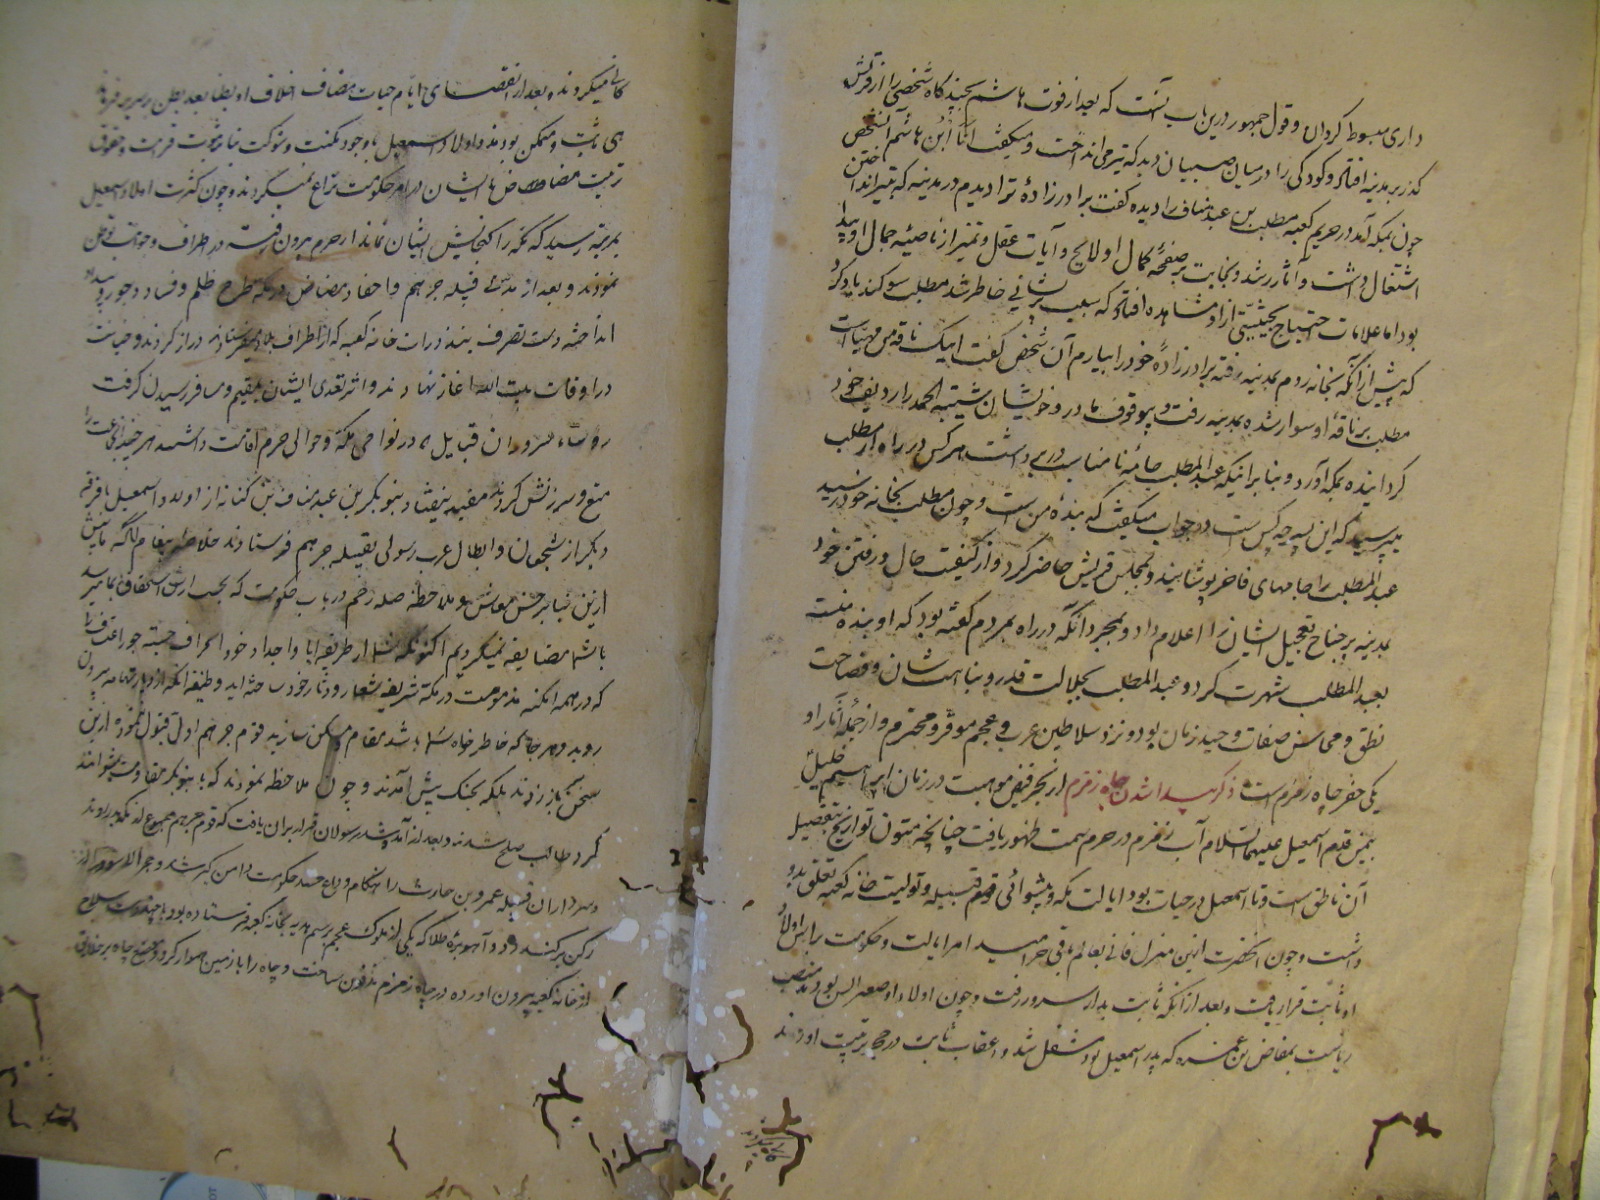 داری مبسوط گردان و قول جمهور درین باب آنست که بعد از فوت هاشم بچندگاه شخصی را از قریش
گذر بر مدینه افتاد و کودکی را در میان صبیان دید که تیر می انداخت و میگفت انا ابن هاشم آن شخص
چون بمکه آمد در حریم کعبه مطلب بن عبد مناف را دیده گفت برادرزادهٔ ترا دیدم در مدینه که بتیر انداختن
اشتغال داشت و آثار رشد و نجابت بر صفحهٔ کمال او لایح و آیات عقل و تمیز از ناصیهٔ جمال او پیدا
بود اما علامات احتیاج بحیثیتی ازو مشاهده افتاد که سبب پریشانی خاطر شد مطلب سوگند یاد کرد
که پیش از آنکه بخانه روم بمدینه رفته برادرزادهٔ خود را بیارم آن شخص گفت اینک ناقه من مهیاست
مطلب بر ناقهٔ او سوار شده بمدینه رفت و بی وقوف مادر و خویشان شیبة الحمد را ردیف خود
گردانیده بمکه آورد و بنا بر آنکه عبد المطلب جامهٔ نامناسب در بر داشت هر کس در راه از مطلب
می پرسید که این پسر چه کس است در جواب میگفت که بندهٔ من ست و چون مطلب بخانه خود رسید
عبد المطلب را جامهای فاخر پوشانید و بمجلس قریش حاضر گرد و از کیفیت حال و رفتن خود
بمدینه بر جناح تعجیل ایشان را اعلام داد و بمجرد آنکه در راه بمردم گفته بود که او بنده منست
بعبد المطلب شهرت کرد و عبد المطلب بجلالت قدر و نباهت شان و فصاحت
نطق و محاسن صفات وحید زمان بود و نزد سلاطین عرب و عجم موقر و محترم و از جمله آثار او
یکی حفر چاه زمزم است ذکر پیدا شدن چاه زمزم از بحر فیض موهبت در زمان ابراهیم خلیل
بیمن قدم اسمعیل علیهما السلام آب زمزم در حرم سمت ظهور یافت چنانچه متون تواریخ بتفصیل
آن ناطق است و تا اسمعیل در حیات بود ایالت مکه و پیشوائی قوم و قبیله و تولیت خانه کعبه تعلق بدو
داشت و چون آنحضرت ازین منزل فانی بعالم باقی خرامید امر ایالت و حکومت بر اسن اولاد
او ثابت قرار یافت و بعد از آنکه ثابت بدار سرور رفت و چون اولاد او صغیر السن بودند منصب
ریاست بمضاض بن عمرو که پدر اسمعیل بود منتقل شد و اعقاب ثابت در حجر تربیت او
کانی میکردند و بعد از انقضای ایام حیات مضاف اخلاف او بطنا بعد بطن بر سریر
می نشست و متمکن بودند و اولاد اسمعیل با وجود مکنت و شوکت بنا بر ثبوت قرابت و حقوق
تربیت مضاض با ایشان در امر حکومت نزاع نمیکردند و چون کثرت اولاد اسمعیل
بمرتبه رسید که مکه را گنجایش ایشان نماند از حرم بیرون رفته در اطراف و جوانب توطن
نمودند و بعد از مدتی قبیله جرهم و احفاد مضاض در مکه طرح ظلم و فساد و جور و بیداد
انداخته دست تصرف بنذورات خانه کعبه که از اطراف بلاد میفرستادند دراز کردند و خیانت
در اوقات بیت الله آغاز نهادند و اثر تعدی ایشان بمقیم و مسافر رسیدن گرفت
روسا و سروران قبایل که در نواحی مکه و حوالی حرم اقامت داشتند هر چند آن جماعت را
منع و سرزنش کردند مفید نیفتاد بنو بکر بن عبد مناف بن کنانه از اولاد اسمعیل با فرقه
دیگر از شجعان و ابطال عرب رسولی بقبیله جرهم فرستادند خلاصه پیغام آنکه ما پیش
ازین بنا بر حسن معاش و ملاحظه صله رحم در باب حکومت که بحسب ارث و استحقاق بما میرسد
با شما مضایقه نمیکردیم اکنون که شما از طریقه ابا و اجداد خود انحراف جسته جور و اعتساف را
که در همه امکنه مذمومست در مکه شریفه شعار و دثار خود ساخته اید وظیفه آنکه از دیار تهامه بیرون
روید و هر جا که خاطر خواه شما باشد مقام و مسکن سازید قوم جرهم اول قبول نموده ازین
سخن باز زدند بلکه بجنک پیش آمدند و چون ملاحظه نمودند که با بنو بکر مقاومت نمیتوانند
کرد طالب صلح شدند و بعد از آمد و شد رسولان قرار بران یافت که قوم جرهم بمجموع از مکه بدر روند
و سرداران قبیله عمرو بن حارث را هنگام وداع حسد حکومت دامن گیر شد و حجر الاسود را از
رکن بر کند و دو آهو بره طلا که یکی از ملوک عجم برسم هدیه بخانه کعبه فرستاده بود با چند دست سلاح
از خانه کعبه بیرون آورده در چاه زمزم مدفون ساخت و چاه را با زمین هموار کرد